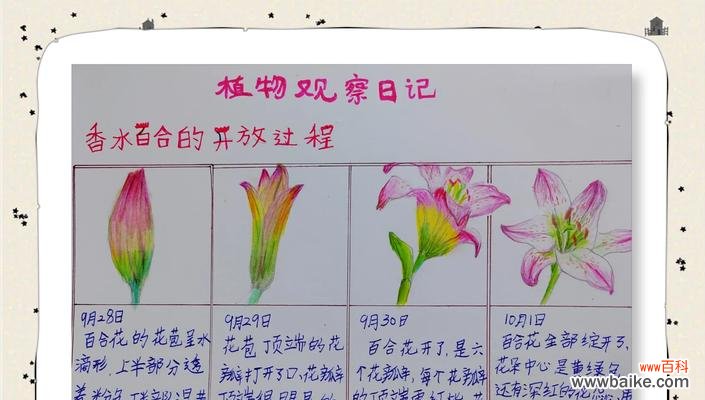 植物观察日记
香水百合的开放过程
9月28日
百合花的花苞呈水
滴形,上半部分透
9月29日
花苞顶端的花
瓣打开了口,花瓣
9月30日
百合花开了,是六
个花瓣,每个花瓣
10月1日
百合花全部绽开了,
花朵中心是黄绿色
还有深红的花
www百科
www.baike.com